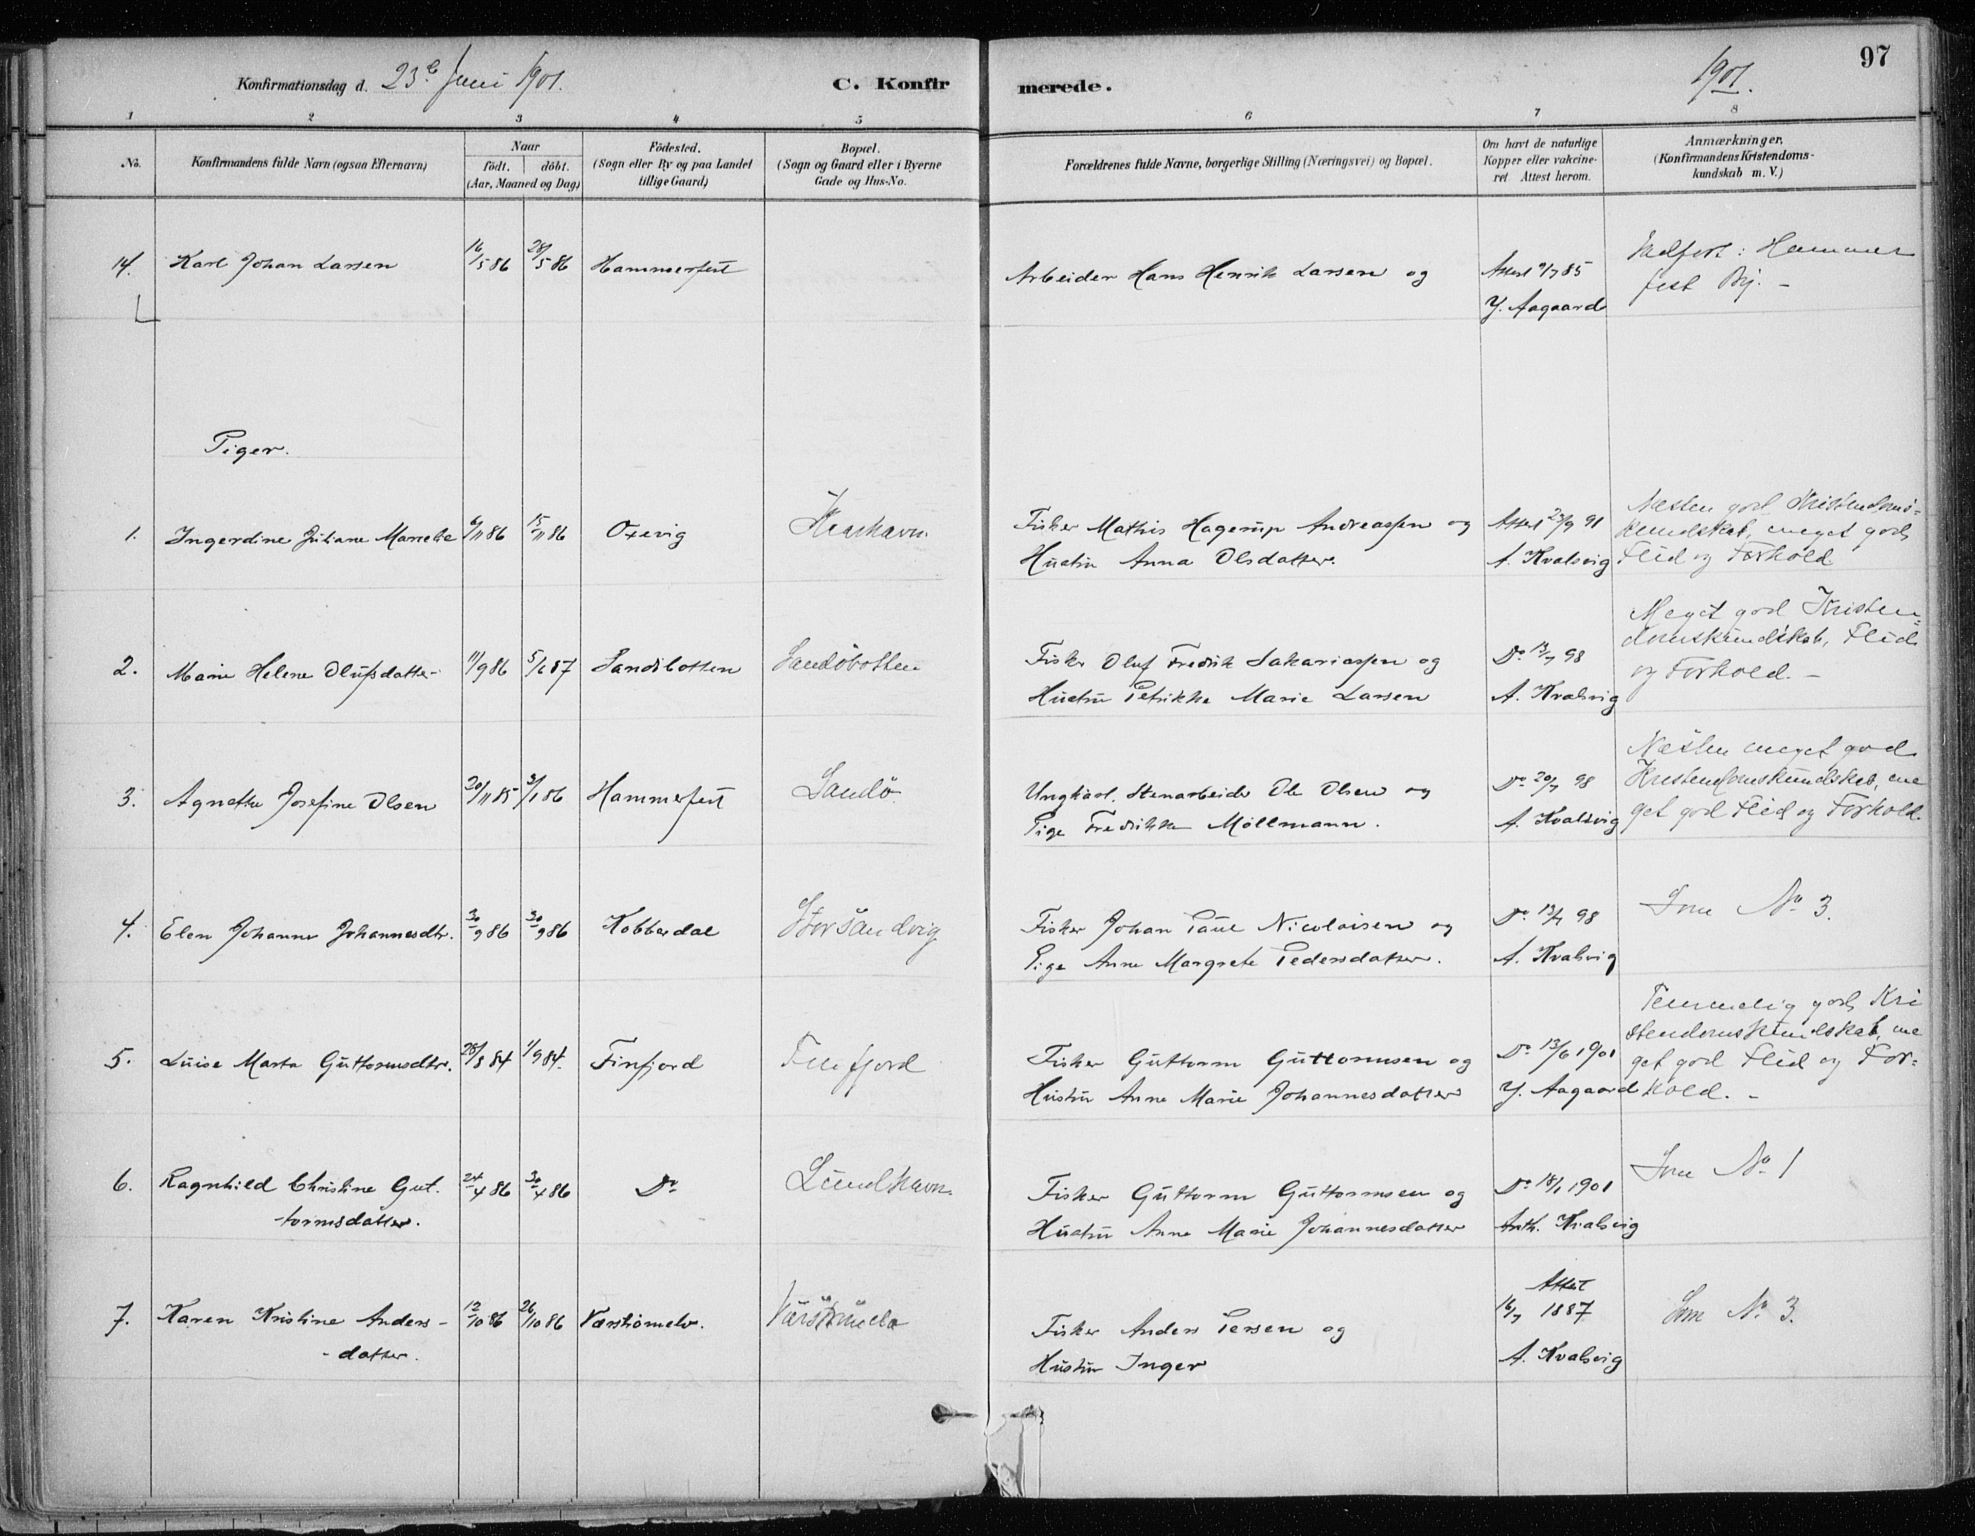 97
Konfirmationsdag d. 23de Juni 1901.
C. Konfirmerede.
1901.
1 2 3 4 5 6 7 8
No.
Konfirmandens fulde Navn (ogsaa Efternavn)
Naar
födt. döbt.
(Aar, Maaned og Dag)
Födested.
(Sogn eller By og paa Landet
tillige Gaard)
Bopæl.
(Sogn og Gaard eller i Byerne
Gade og Hus-No.
Forældrenes fulde Navne, borgerlige Stilling (Næringsvei) og Bopæl.
Om havt de naturlige
Kopper eller vakcine-
ret. Attest herom.
Anmærkninger,
(Konfirmandens Kristendoms-
kundskab m. V.)
14. Karl Johan Larsen 16/5 86 28/5 86 Hammerfest
Arbeider Hans Henrik Larsen og
Attest 9/7 85
Y. Aagaard
Indført: Hammer
fest By. -
Piger.
1. Ingerdine Juliane 6/11 86 15/11 86 Oxevig
Fisker Mathis Hagerup Andreassen og
Hustru Anna Olsdatter.
Attest 25/9 91
A. Kvalsvig
Næsten god Kristendoms-
kundskab, meget god
Flid og Forhold
2. Marie Helene Olufsdatter - 11/9 86 5/6 87 Sandöbotten Sandöbotten
Fisker Oluf Fredrik Sakariassen og
Hustru Petrikke Marie Larsen
Do 13/7 98
A. Kvalsvig
Meget god Kristen=
domskundskab, Flid
og Forhold. -
3. Agnethe Josefine Olsen 20/11 85 3/1 86 Hammerfest Sandö
Ungkarl, Stenarbeider Ole Olsen og
Pige Fredrikke Möllmann.
Do 20/7 98
A. Kvalsvig
Næsten meget god
Kristendomskundskab, me
get god Flid og Forhold.
4. Elen Johanne Johannesdtr. 30/9 86 30/9 86 Kobberdal Storsandvig
Fisker Johan Paul Nicolaisen og
Pige Anne Margrete Pedersdatter.
Do 13/7 98
A. Kvalsvig
Som No 3.
5. Luise Marta Guttormsdtr. 28/8 84 1/9 84. Finfjord Finfjord
Fisker Guttorm Guttormsen og
Hustru Anne Marie Johannesdatter
Do 13/6 1901
Y. Aagaard
Temmelig god Kri
stendomskundskab, me
get god Flid og For=
hold. -
6. Ragnhild Christine Gut-
tormsdatter. 24/4 86 30/4 86 Do Lundhavn
Fisker Guttorm Guttormsen og
Hustru Anne Marie Johannesdatter
Do 18/1 1901
Anth. Kvalsvig
Som No 1
7. Karen Kristine Anders -
- datter. 12/10 86 26/10 86
Fisker Anders Persen og
Hustru Inger
Attest
16/7 1887
A. Kvalsvig
Som No 3.